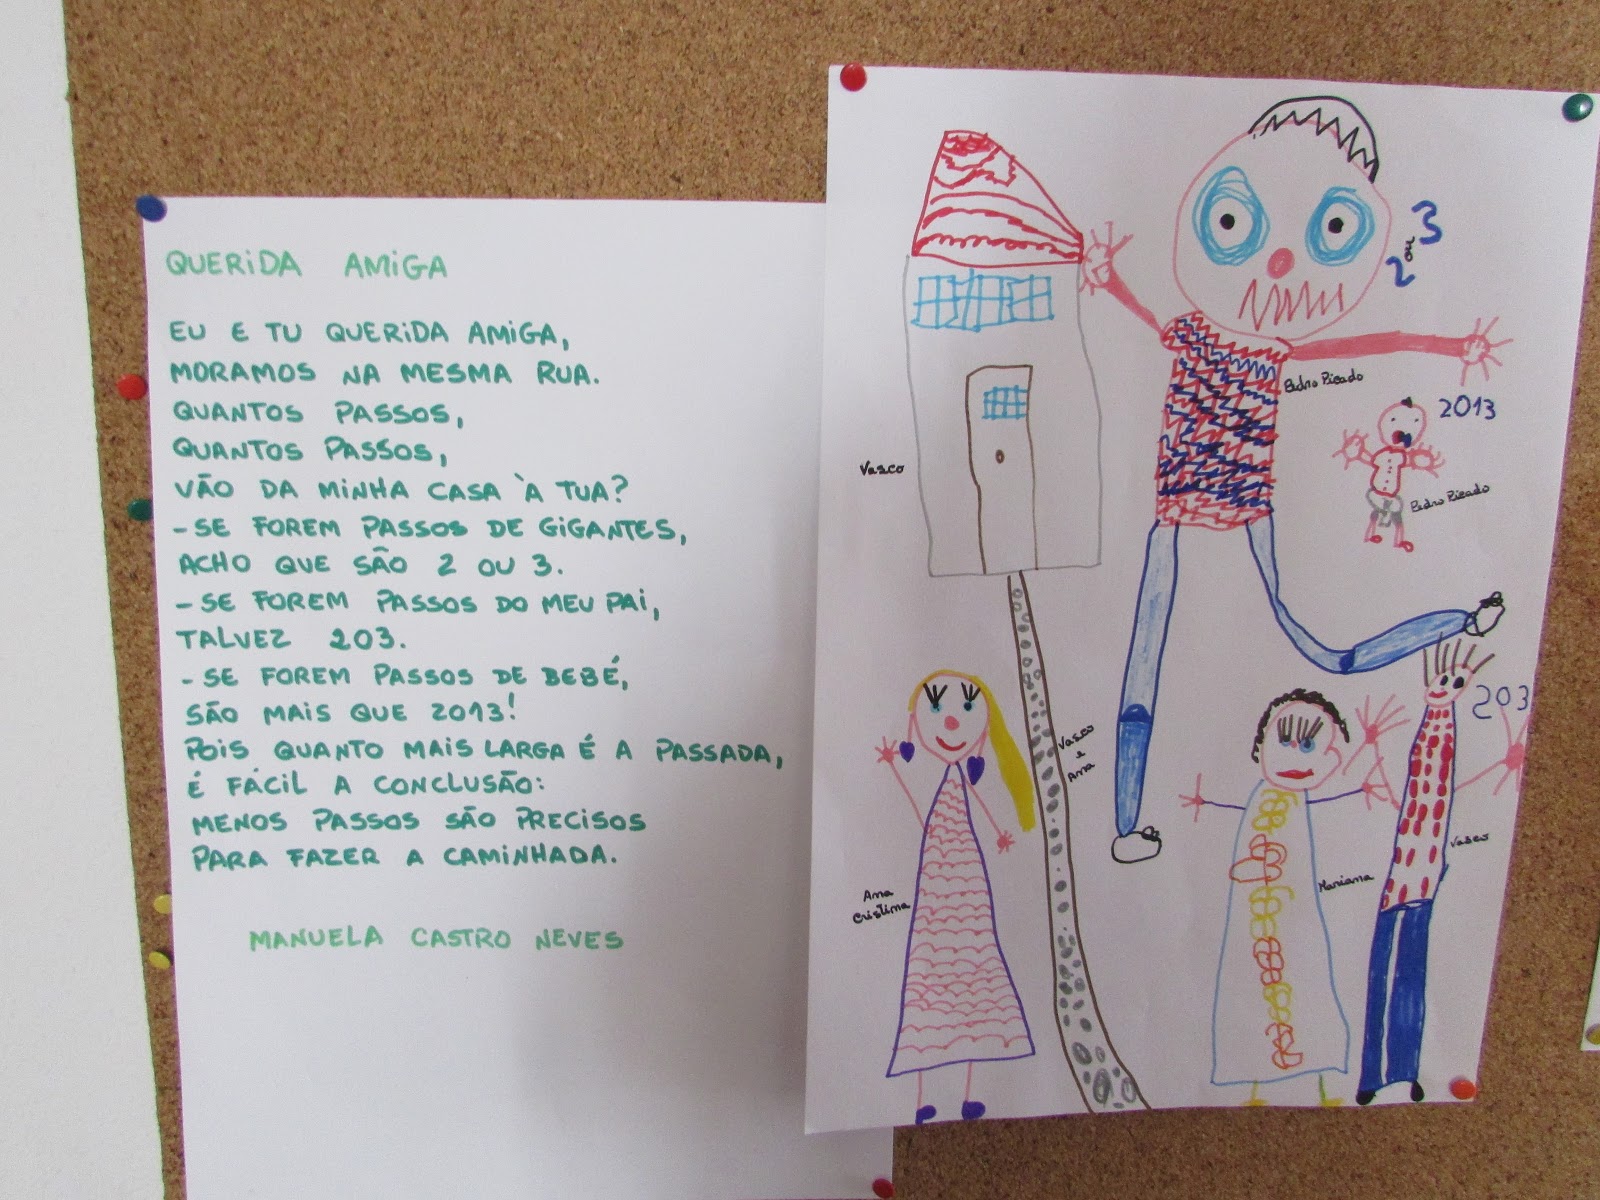 QUERIDA AMIGA
EU E TU QUERIDA AMIGA,
MORAMOS NA MESMA RUA.
QUANTOS PASSOS,
QUANTOS PASSOS,
VÃO DA MINHA CASA À TUA?
- SE FOREM PASSOS DE GIGANTES,
ACHO QUE SÃO 2 OU 3.
- SE FOREM PASSOS DO MEU PAI,
TALVEZ 203.
- SE FOREM PASSOS DE BEBÉ,
SÃO MAIS QUE 2013!
POIS QUANTO MAIS LARGA É A PASSADA,
É FÁCIL A CONCLUSÃO:
MENOS PASSOS SÃO PRECISOS
PARA FAZER A CAMINHADA.
MANUELA CASTRO NEVES
2 ou 3
Pedro Picado
2013
Pedro Picado
Vasco
203
Vasco
e
Ana
Vasco
Mariana
Ana
Cristina